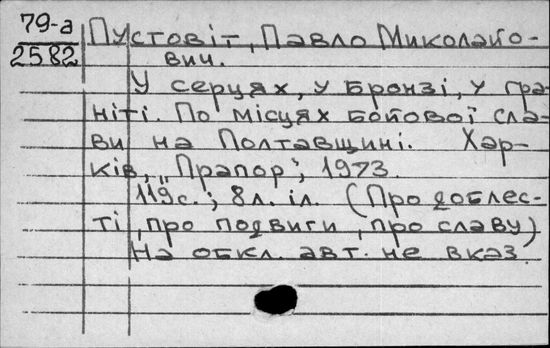 79-а
2582
Пустовіт, Павло Миколайо-
вич.
У серцях, у бронзі, у гра-
ніті. По місцях бойової сла-
ви на Полтавщині. Хар-
ків, „Прапор", 1973.
119с.; 8л. іл. (Про доблес-
ті, про подвиги, про славу)
На обкл. авт. не вказ.